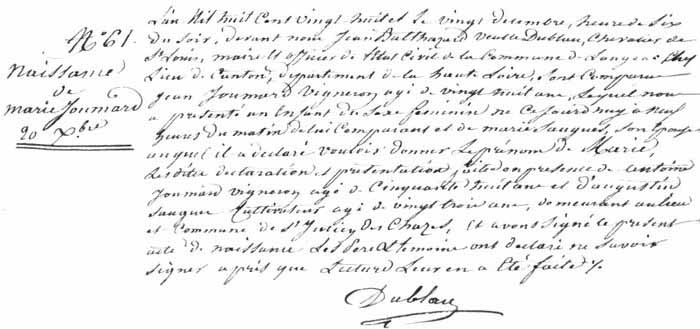 N.° 61.
Naissance
de
marie Joumard
20 Xbre
L'an Mil huit Cent vingt huit et le vingt decembre, heure de six
du soir, devant nous Jean Balthazard Dublau, Chevalier de
St Louis, maire et officier de l'état Civil de la Commune de Langeac Chef
Lieu de Canton, département de la haute Loire, sont Comparu
jean Joumard vigneron agé de vingt huit ans, Lequel nous
a présenté un Enfant du Sexe feminin né Ce jourd'huy a neuf
heures du matin de lui Comparant et de marie Sauguer, son Epouse
auquel il a déclaré vouloir donner Le prénom de Marie,
Lesdites declaration et présentation faites en presence de antoine
Joumard vigneron agé de Cinquante huit ans et d'augustin
Sauguer Cultivateur agé de vingt trois ans, demeurant au lieu
et Commune de St Julien Des Chazes, Et avons signé le present
acte de naissance Les Pere et temoins ont declaré ne Savoir
signer après que Lecture Leur en a Eté faite ./.
Dublau